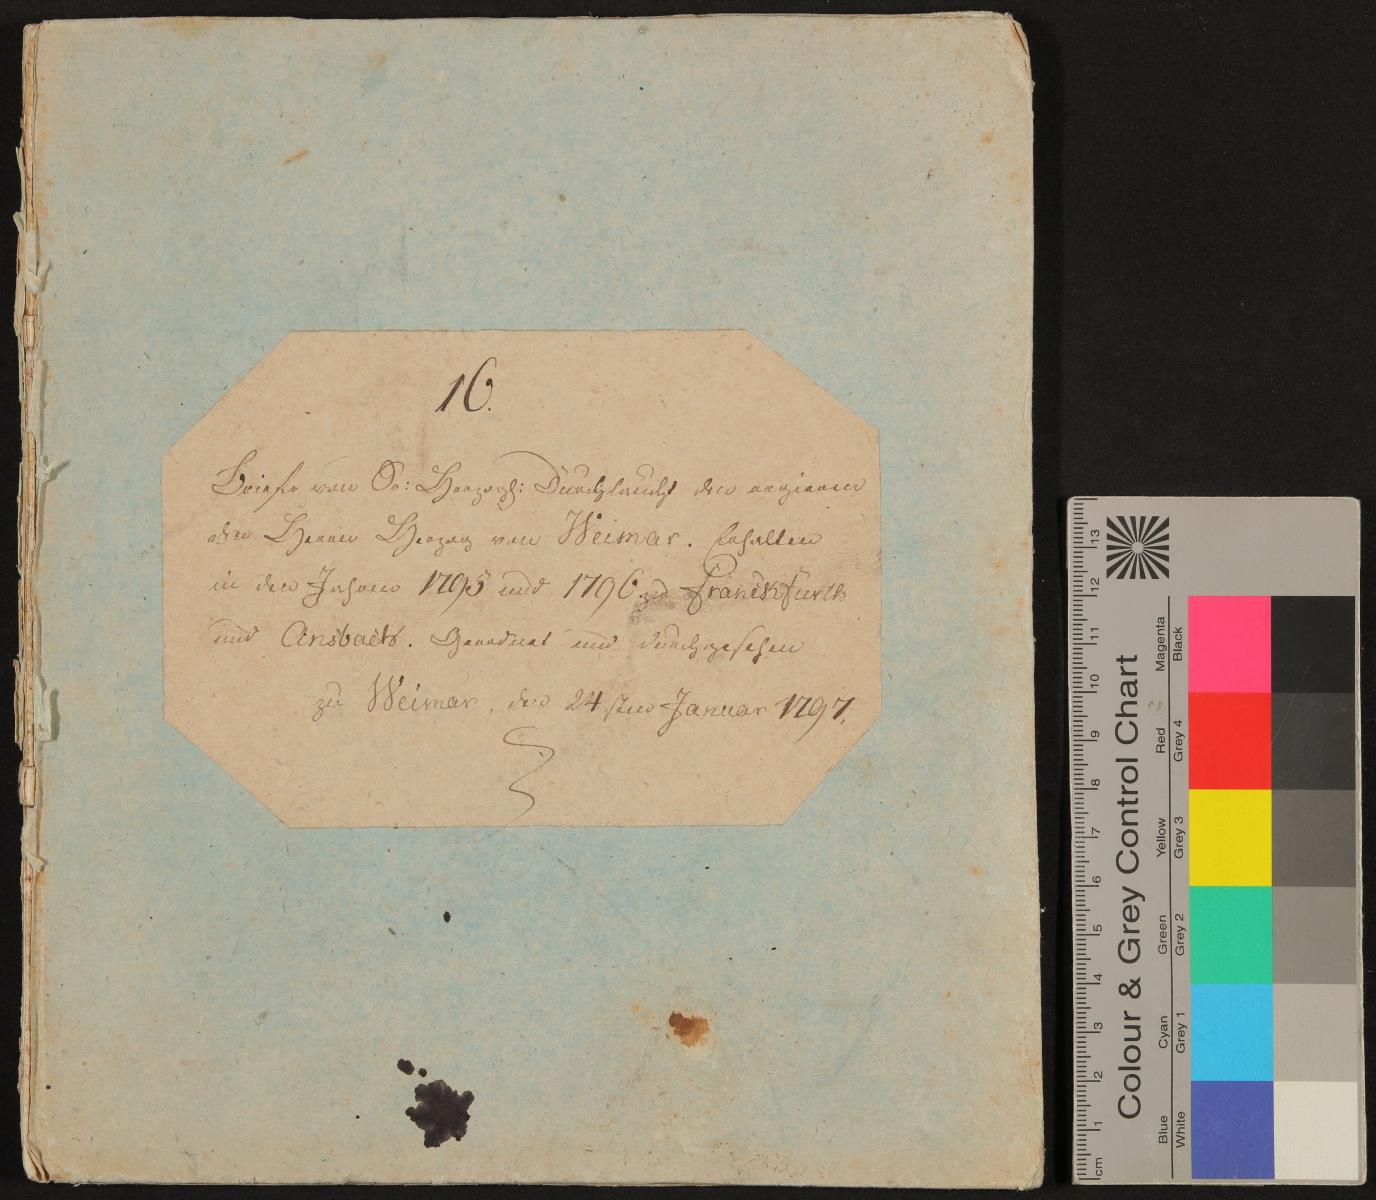 16.
Briefe von Sr: Herzogl: Durchlaucht den regieren
den Herrn Herzog von Weimar. Erhalten
in den Jahren 1795 und 1796 zu Franckfurth
und Ansbach. Geordnet und durchgesehen
zu Weimar, den 24sten Januar 1797.
Colour & Grey Control Chart
Blue Cyan Green Yellow Red Magenta
White Grey 1 Grey 2 Grey 3 Grey 4 Black
cm 1 2 3 4 5 6 7 8 9 10 11 12 13